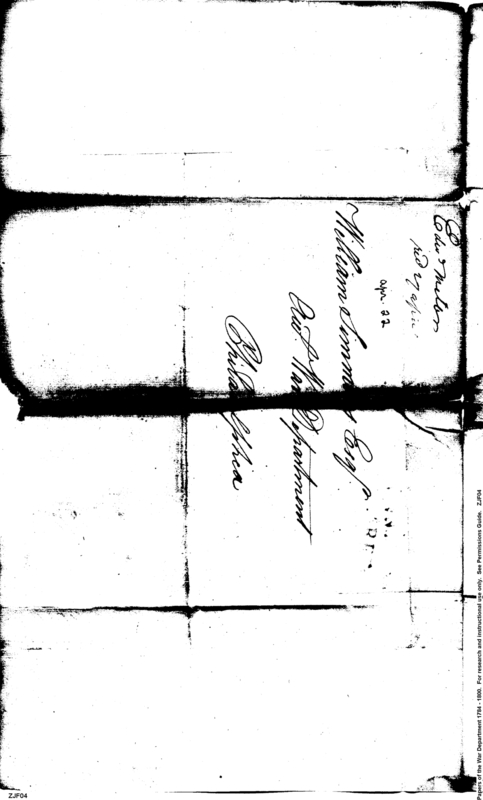 Edwd Milor
apr. 22
William Simmons Esqr.
War Department
Philadelphia
Papers of the War Department 1784 - 1800. For research and instructional use only. See Permissions Guide. ZJF04
ZJF04